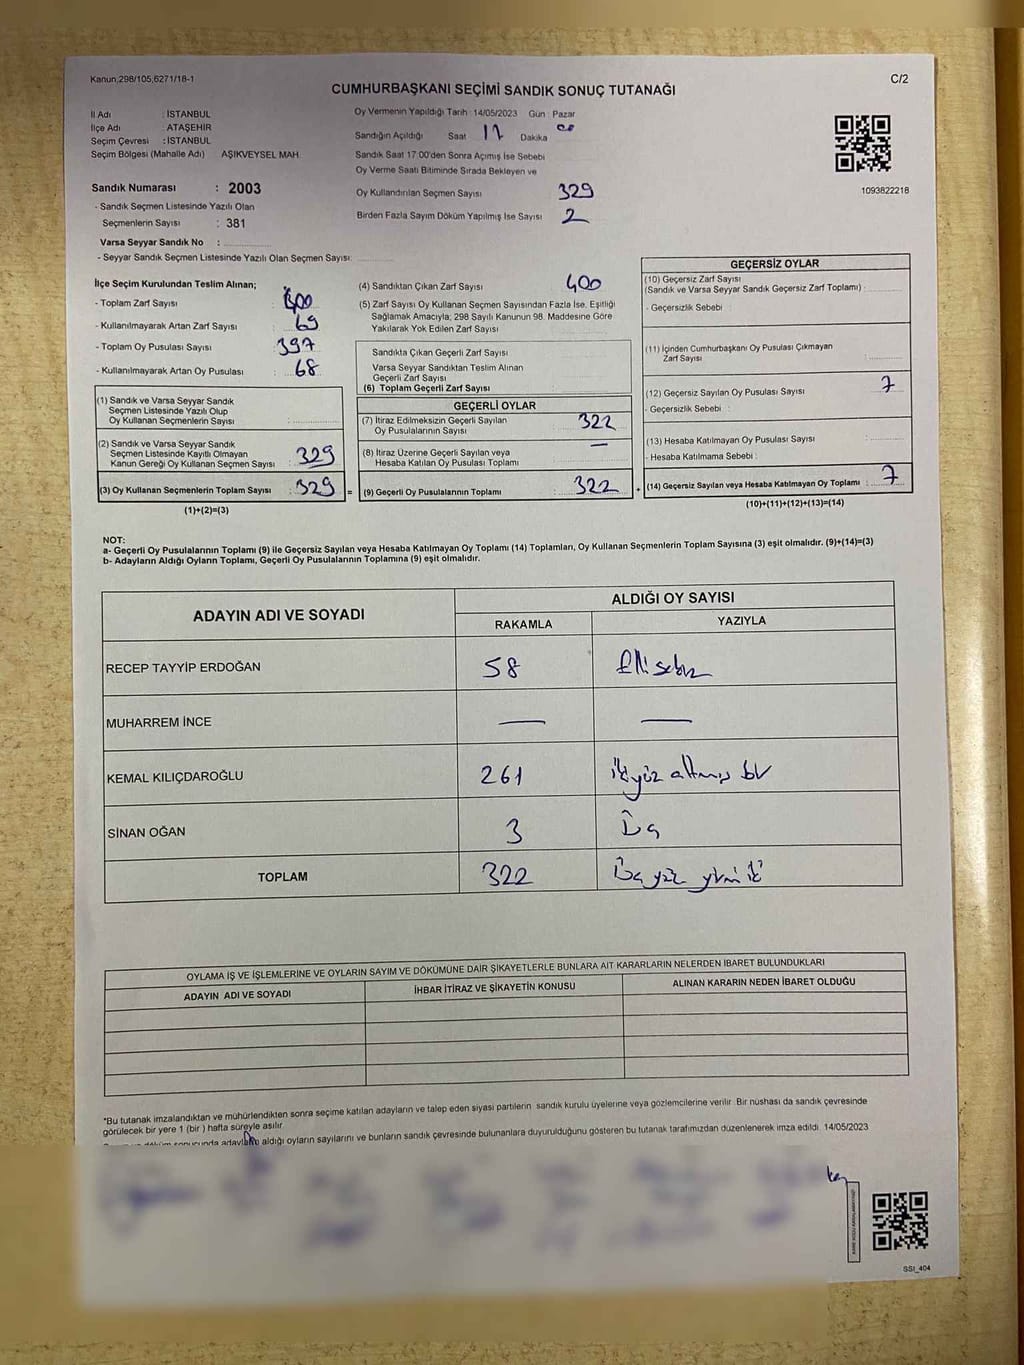 Kanun,298/105,6271/18-1
C/2
CUMHURBAŞKANI SEÇİMİ SANDIK SONUÇ TUTANAĞI
İl Adı : İSTANBUL
İlçe Adı : ATAŞEHİR
Seçim Çevresi : İSTANBUL
Seçim Bölgesi (Mahalle Adı) AŞIKVEYSEL MAH.
Sandık Numarası : 2003
- Sandık Seçmen Listesinde Yazılı Olan
Seçmenlerin Sayısı : 381
Varsa Seyyar Sandık No :
- Seyyar Sandık Seçmen Listesinde Yazılı Olan Seçmen Sayısı:
Oy Vermenin Yapıldığı Tarih : 14/05/2023 Gün : Pazar
Sandığın Açıldığı Saat 17 Dakika 00
Sandık Saat 17:00'den Sonra Açımış İse Sebebi
Oy Verme Saati Bitiminde Sırada Bekleyen ve
Oy Kullandırılan Seçmen Sayısı 329
Birden Fazla Sayım Döküm Yapılmış İse Sayısı 2
1093822218
İlçe Seçim Kurulundan Teslim Alınan;
- Toplam Zarf Sayısı : 400
- Kullanılmayarak Artan Zarf Sayısı : 69
- Toplam Oy Pusulası Sayısı : 397
- Kullanılmayarak Artan Oy Pusulası : 68
(1) Sandık ve Varsa Seyyar Sandık
Seçmen Listesinde Yazılı Olup
Oy Kullanan Seçmenlerin Sayısı :
(2) Sandık ve Varsa Seyyar Sandık
Seçmen Listesinde Kayıtlı Olmayan
Kanun Gereği Oy Kullanan Seçmen Sayısı : 329
(3) Oy Kullanan Seçmenlerin Toplam Sayısı : 329 =
(1)+(2)=(3)
(4) Sandıktan Çıkan Zarf Sayısı 400
(5) Zarf Sayısı Oy Kullanan Seçmen Sayısından Fazla İse, Eşitliği
Sağlamak Amacıyla; 298 Sayılı Kanunun 98. Maddesine Göre
Yakılarak Yok Edilen Zarf Sayısı
Sandıkta Çıkan Geçerli Zarf Sayısı
Varsa Seyyar Sandıktan Teslim Alınan
Geçerli Zarf Sayısı
(6) Toplam Geçerli Zarf Sayısı :
GEÇERLİ OYLAR
(7) İtiraz Edilmeksizin Geçerli Sayılan
Oy Pusulalarının Sayısı : 322
(8) İtiraz Üzerine Geçerli Sayılan veya
Hesaba Katılan Oy Pusulası Toplamı : —
(9) Geçerli Oy Pusulalarının Toplamı : 322 +
GEÇERSİZ OYLAR
(10) Geçersiz Zarf Sayısı
(Sandık ve Varsa Seyyar Sandık Geçersiz Zarf Toplamı) :
- Geçersizlik Sebebi :
(11) İçinden Cumhurbaşkanı Oy Pusulası Çıkmayan
Zarf Sayısı :
(12) Geçersiz Sayılan Oy Pusulası Sayısı : 7
- Geçersizlik Sebebi :
(13) Hesaba Katılmayan Oy Pusulası Sayısı :
- Hesaba Katılmama Sebebi :
(14) Geçersiz Sayılan veya Hesaba Katılmayan Oy Toplamı : 7
(10)+(11)+(12)+(13)=(14)
NOT:
a- Geçerli Oy Pusulalarının Toplamı (9) ile Geçersiz Sayılan veya Hesaba Katılmayan Oy Toplamı (14) Toplamları, Oy Kullanan Seçmenlerin Toplam Sayısına (3) eşit olmalıdır. (9)+(14)=(3)
b- Adayların Aldığı Oyların Toplamı, Geçerli Oy Pusulalarının Toplamına (9) eşit olmalıdır.
ADAYIN ADI VE SOYADI
ALDIĞI OY SAYISI
RAKAMLA YAZIYLA
RECEP TAYYİP ERDOĞAN 58 Elli sekiz
MUHARREM İNCE — —
KEMAL KILIÇDAROĞLU 261 iki yüz altmış bir
SİNAN OĞAN 3 Üç
TOPLAM 322 Üç yüz yirmi iki
OYLAMA İŞ VE İŞLEMLERİNE VE OYLARIN SAYIM VE DÖKÜMÜNE DAİR ŞİKAYETLERLE BUNLARA AİT KARARLARIN NELERDEN İBARET BULUNDUKLARI
ADAYIN ADI VE SOYADI İHBAR İTİRAZ VE ŞİKAYETİN KONUSU ALINAN KARARIN NEDEN İBARET OLDUĞU
*Bu tutanak imzalandıktan ve mühürlendikten sonra seçime katılan adayların ve talep eden siyasi partilerin sandık kurulu üyelerine veya gözlemcilerine verilir. Bir nüshası da sandık çevresinde
görülecek bir yere 1 (bir ) hafta süreyle asılır.
aldığı oyların sayılarını ve bunların sandık çevresinde bulunanlara duyurulduğunu gösteren bu tutanak tarafımızdan düzenlenerek imza edildi. 14/05/2023
SSI_404